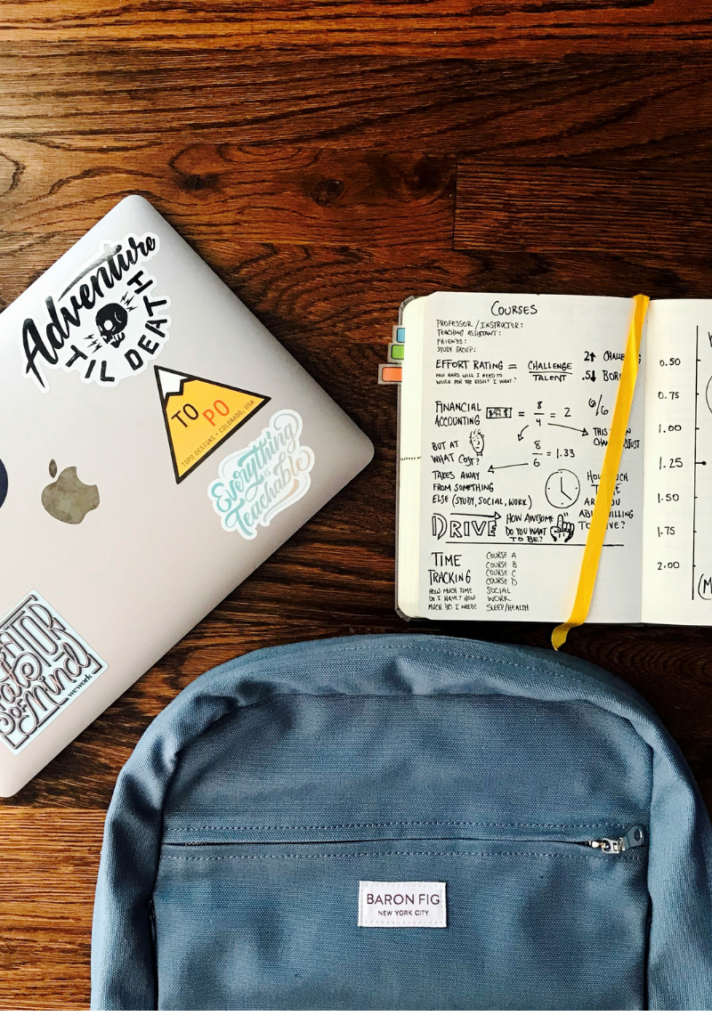 Adventure
TIL DEATH
TO PO
TOPO DESIGNS • COLORADO, USA
Everything
is
Teachable
CREATOR
OF Mind
wework
COURSES
PROFESSOR / INSTRUCTOR:
TEACHING ASSISTANT:
FRIENDS:
STUDY GROUP:
EFFORT RATING = CHALLENGE
TALENT
HOW HARD WILL I NEED TO
WORK FOR THE RESULT I WANT?
2↑
.5↓
FINANCIAL
ACCOUNTING
8
4
= 2
6/6
THIS
BUT AT
WHAT COST?
8
6
= 1.33
TAKES AWAY
FROM SOMETHING
ELSE (STUDY, SOCIAL, WORK)
DRIVE
HOW AWESOME
DO YOU WANT
TO BE?
TIME
TRACKING
HOW MUCH TIME
DO I HAVE? HOW
MUCH DO I NEED?
COURSE A
COURSE B
COURSE C
COURSE D
SOCIAL
WORK
SLEEP/HEALTH
0.50
0.75
1.00
1.25
1.50
1.75
2.00
BARON FIG
NEW YORK CITY